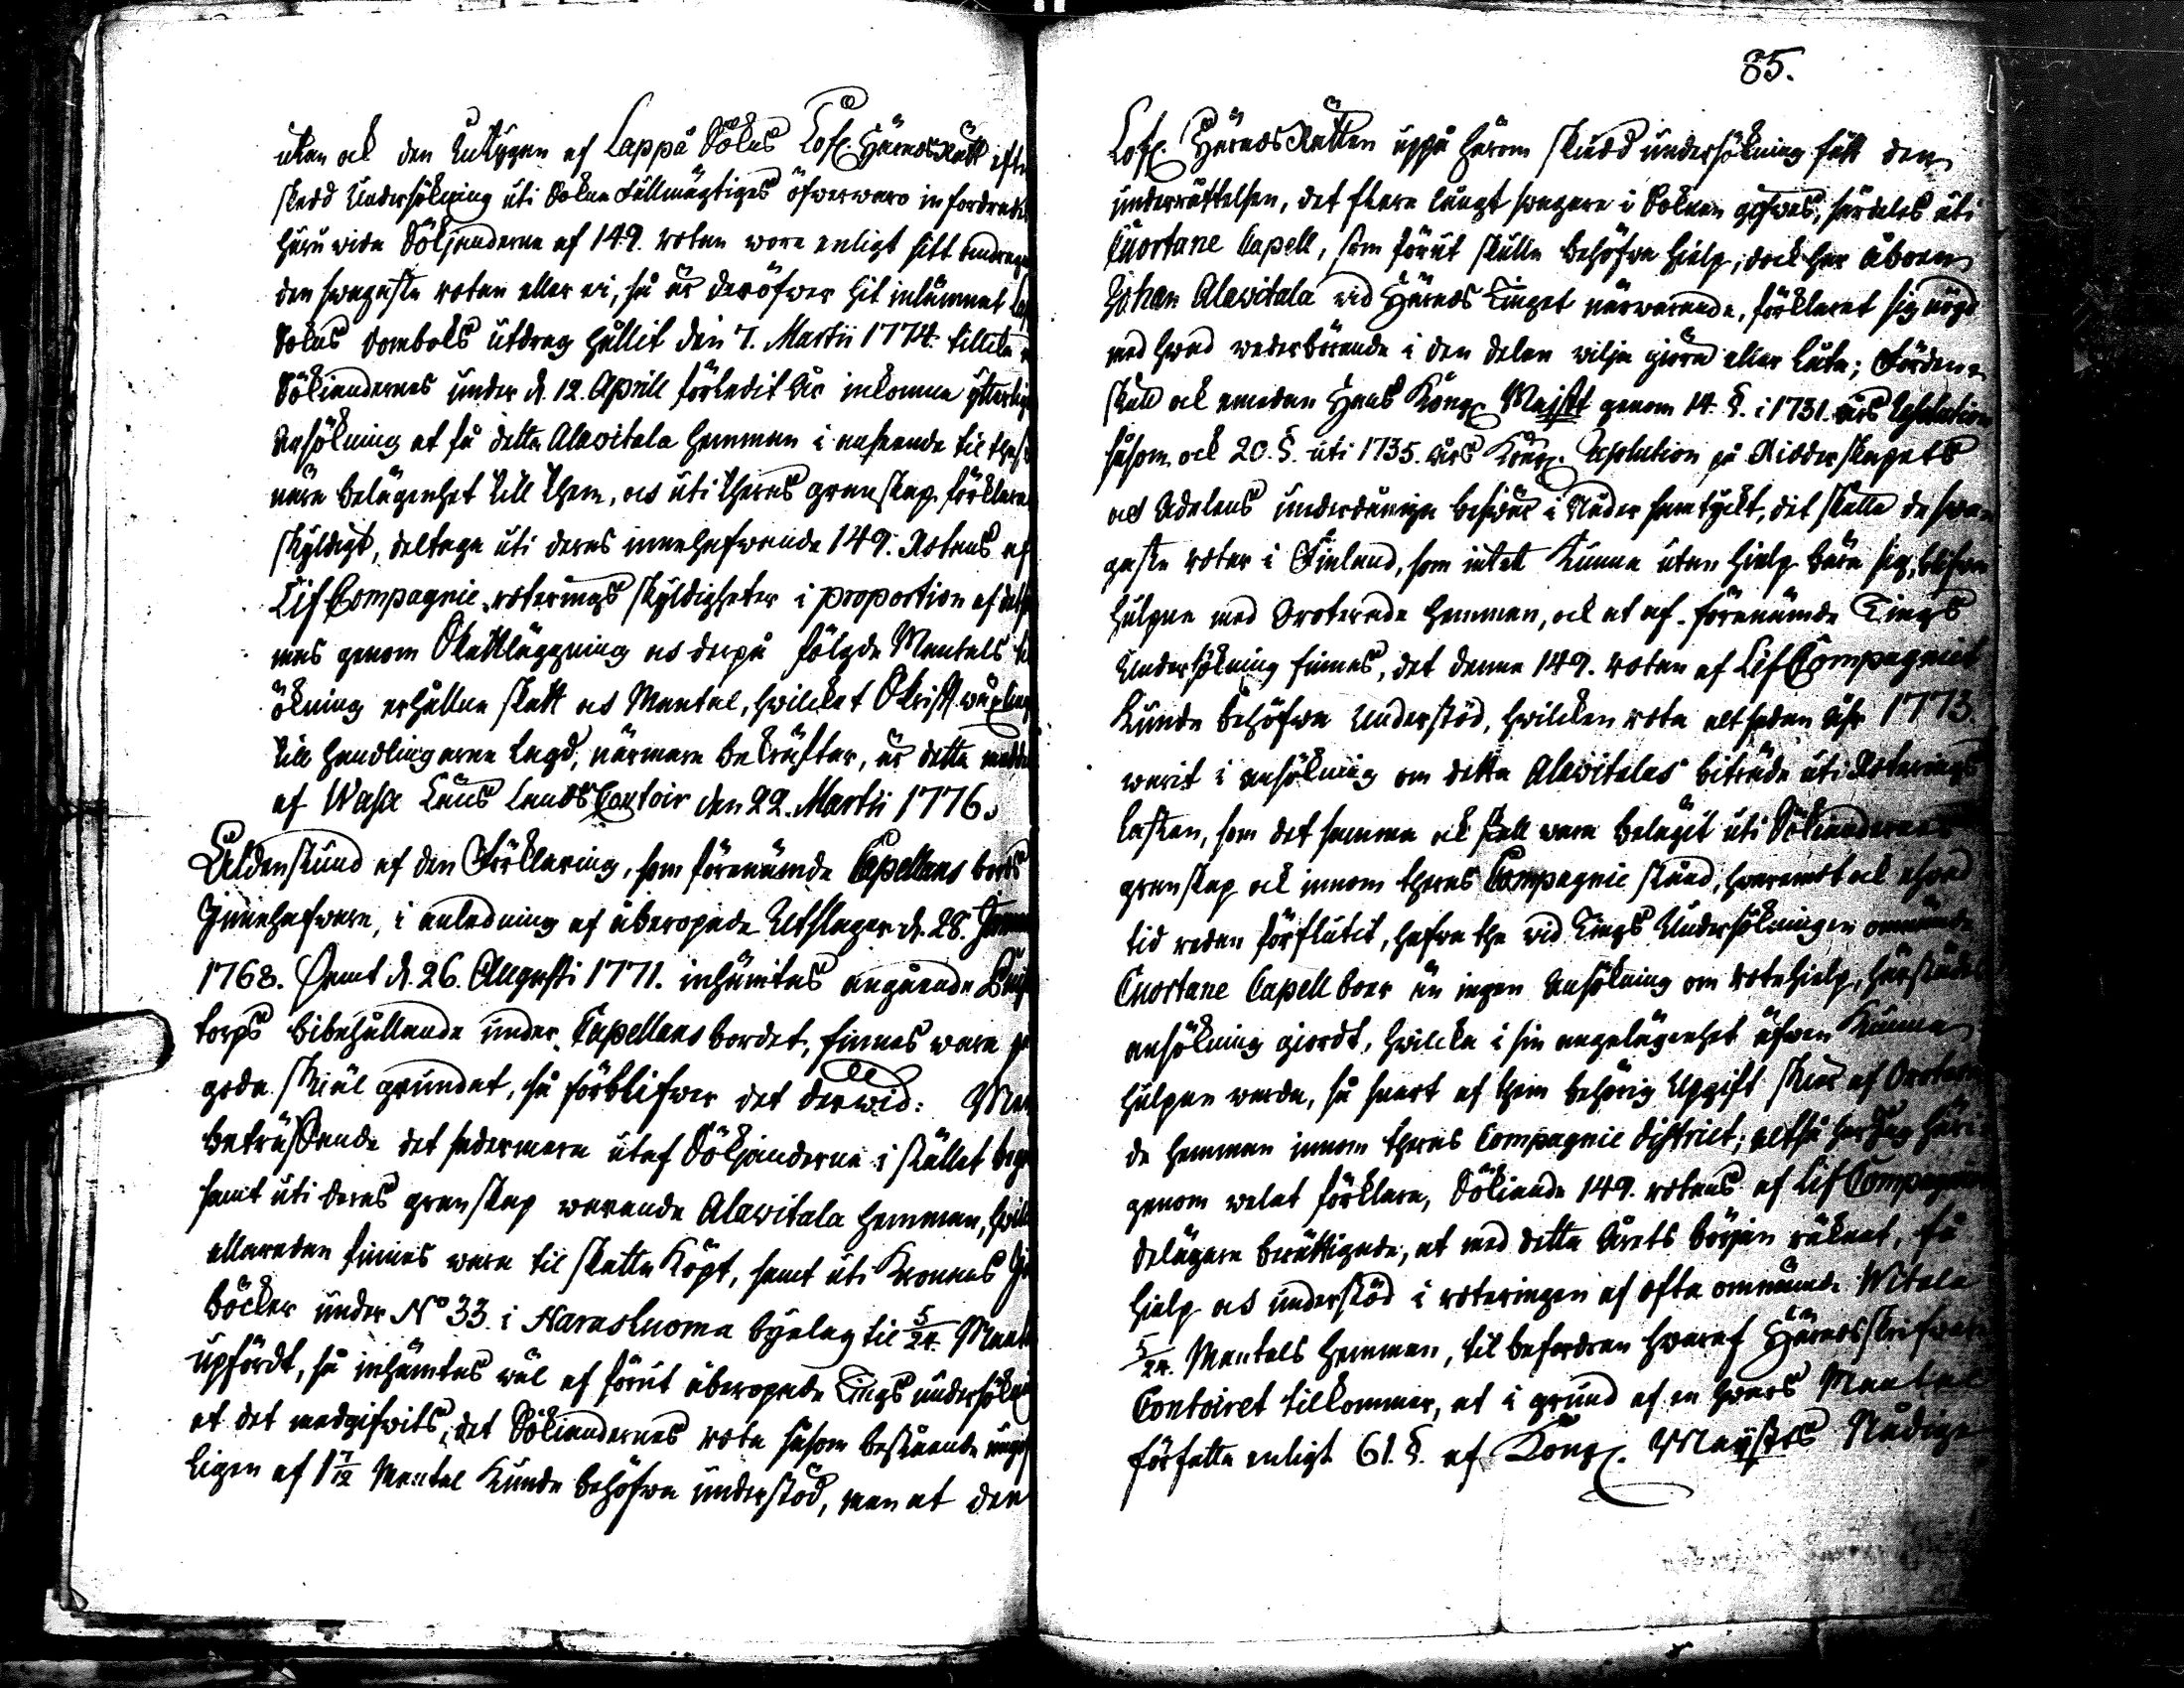 utan ock den Intygan af Lappå Sokns Lofl. HäradsRätt efter
skedd Undersökning uti Sokne Fullmägtiges öfwerwaro infordrades
huru wida Sökjanderne af 149. rotan wore enligt sitt andragande
den swagaste rotan eller ei, så är deröfwer hit inlämnat
Sokns domboks utdrag hållit den 7. Martii 1774. tillika
Sökiandernes under d. 12. Aprill förledit År inkomne ytterligare
Ansökning at få detta Alawitala hemman i anseende til thess
nära belägenhet till them, och uti theras granskap förklarat
skyldigt, deltaga uti deras innehafwande 149. Rotans af
Lif Compagnie roterings skyldigheter i proportion af dess
mas genom Skattläggning och derpå fölgde Mantals
ökning erhållne skatt och Mantal, hwilcket Skriftwäxlingen
till handlingarne lagd, närmare bekräftar, är detta
af Wasa Läns LandsContoir den 22. Martii 1776.
Aldenstund af den Förklaring, som förenämde Capellans bords
Innehafware, i anledning af åberopade Utslager d. 28.
1768. samt d. 26. Augusti 1771. inhämtas angående
torps bibehållande under Capellans bordet, finnas wara på
goda skiäl grundat, så förblifwer det derwid: Men
beträffande det sedermera utaf Sökjanderne i stället
samt uti deras granskap warande Alawitala hemman,
allaredan finnes wara til skatte Köpt, samt uti Kronnes
böcker under No 33 i Narasluoma byalag til 5/24. Mantal
upfördt, så inhämtas wäl af förut åberopade Tings undersökning
at det medgifwits, det Sökiandernes rote såsom bestående
ligen af 1 7/12 Mantal Kunde behöfwa understöd, men at den
85.
Lofl. HäradsRätten uppå härom skedd undersökning fått den
underrättelsen, det flere långt swagare i Soknen gifwas, särdeles uti
Cuortane Capell, som förut skulle behöfwa hielp, dock har åboen
Johan Alawitala wid Härads Tinget närwarande, förklarat sig nögd
med hwad wederbörande i den delen wilja giöra eller låta; Fördens-
skull ock emedan Hans Kongl. Majst genom 14. §. i 1731. års Resolution
såsom ock 20. §. uti 1735. års Kongl. Resolution på Ridderskapets
och Adelens underdåniga beswär i Nåder samtyckt, det skulle de swa-
gaste rotar i Finland, som intet Kunna utan hielp bära sig, blifwa
hulpne med Oroterade hemman, ock at af förenämde Tings
Undersökning finnes, det denne 149. rotan af Lif Compagniet
Kunde behöfwa Understöd, hwilcken rota altsedan Åhr 1773.
warit i ansökning om detta Alawitalas biträde uti Roterings
lasten, som det samma ock skall wara belägit uti Sökiandernes
granskap ock innom theras Compagnie stånd, hwaremot ock ehuru
tid redan förflutit, hafwa the wid Tings Undersökningen omnämde
Cuortane Capell boer än ingen Ansökning om Rotehielp, härstädes
ansökning giordt, hwilcka i sin angelägenhet äfwen Kunna
hulpne warda, så snart af them behörig Upgift sker af Orotera-
de hemman innom theras Compagnie district; altså har Jag häri-
genom welat förklara, Sökiande 149. rotans af Lif Compagniet
delägare berättigade, at med detta Årets början räknat, få
hielp och understöd i roteringen af ofta omnämde Witala
5/24. Mantals hemman, til befordran hwaraf Häradsskrifware
Contoiret tilkommer, at i grund af en hwars Mantal
författa enligt 61. §. af Kongl. Mayst:s Nådige